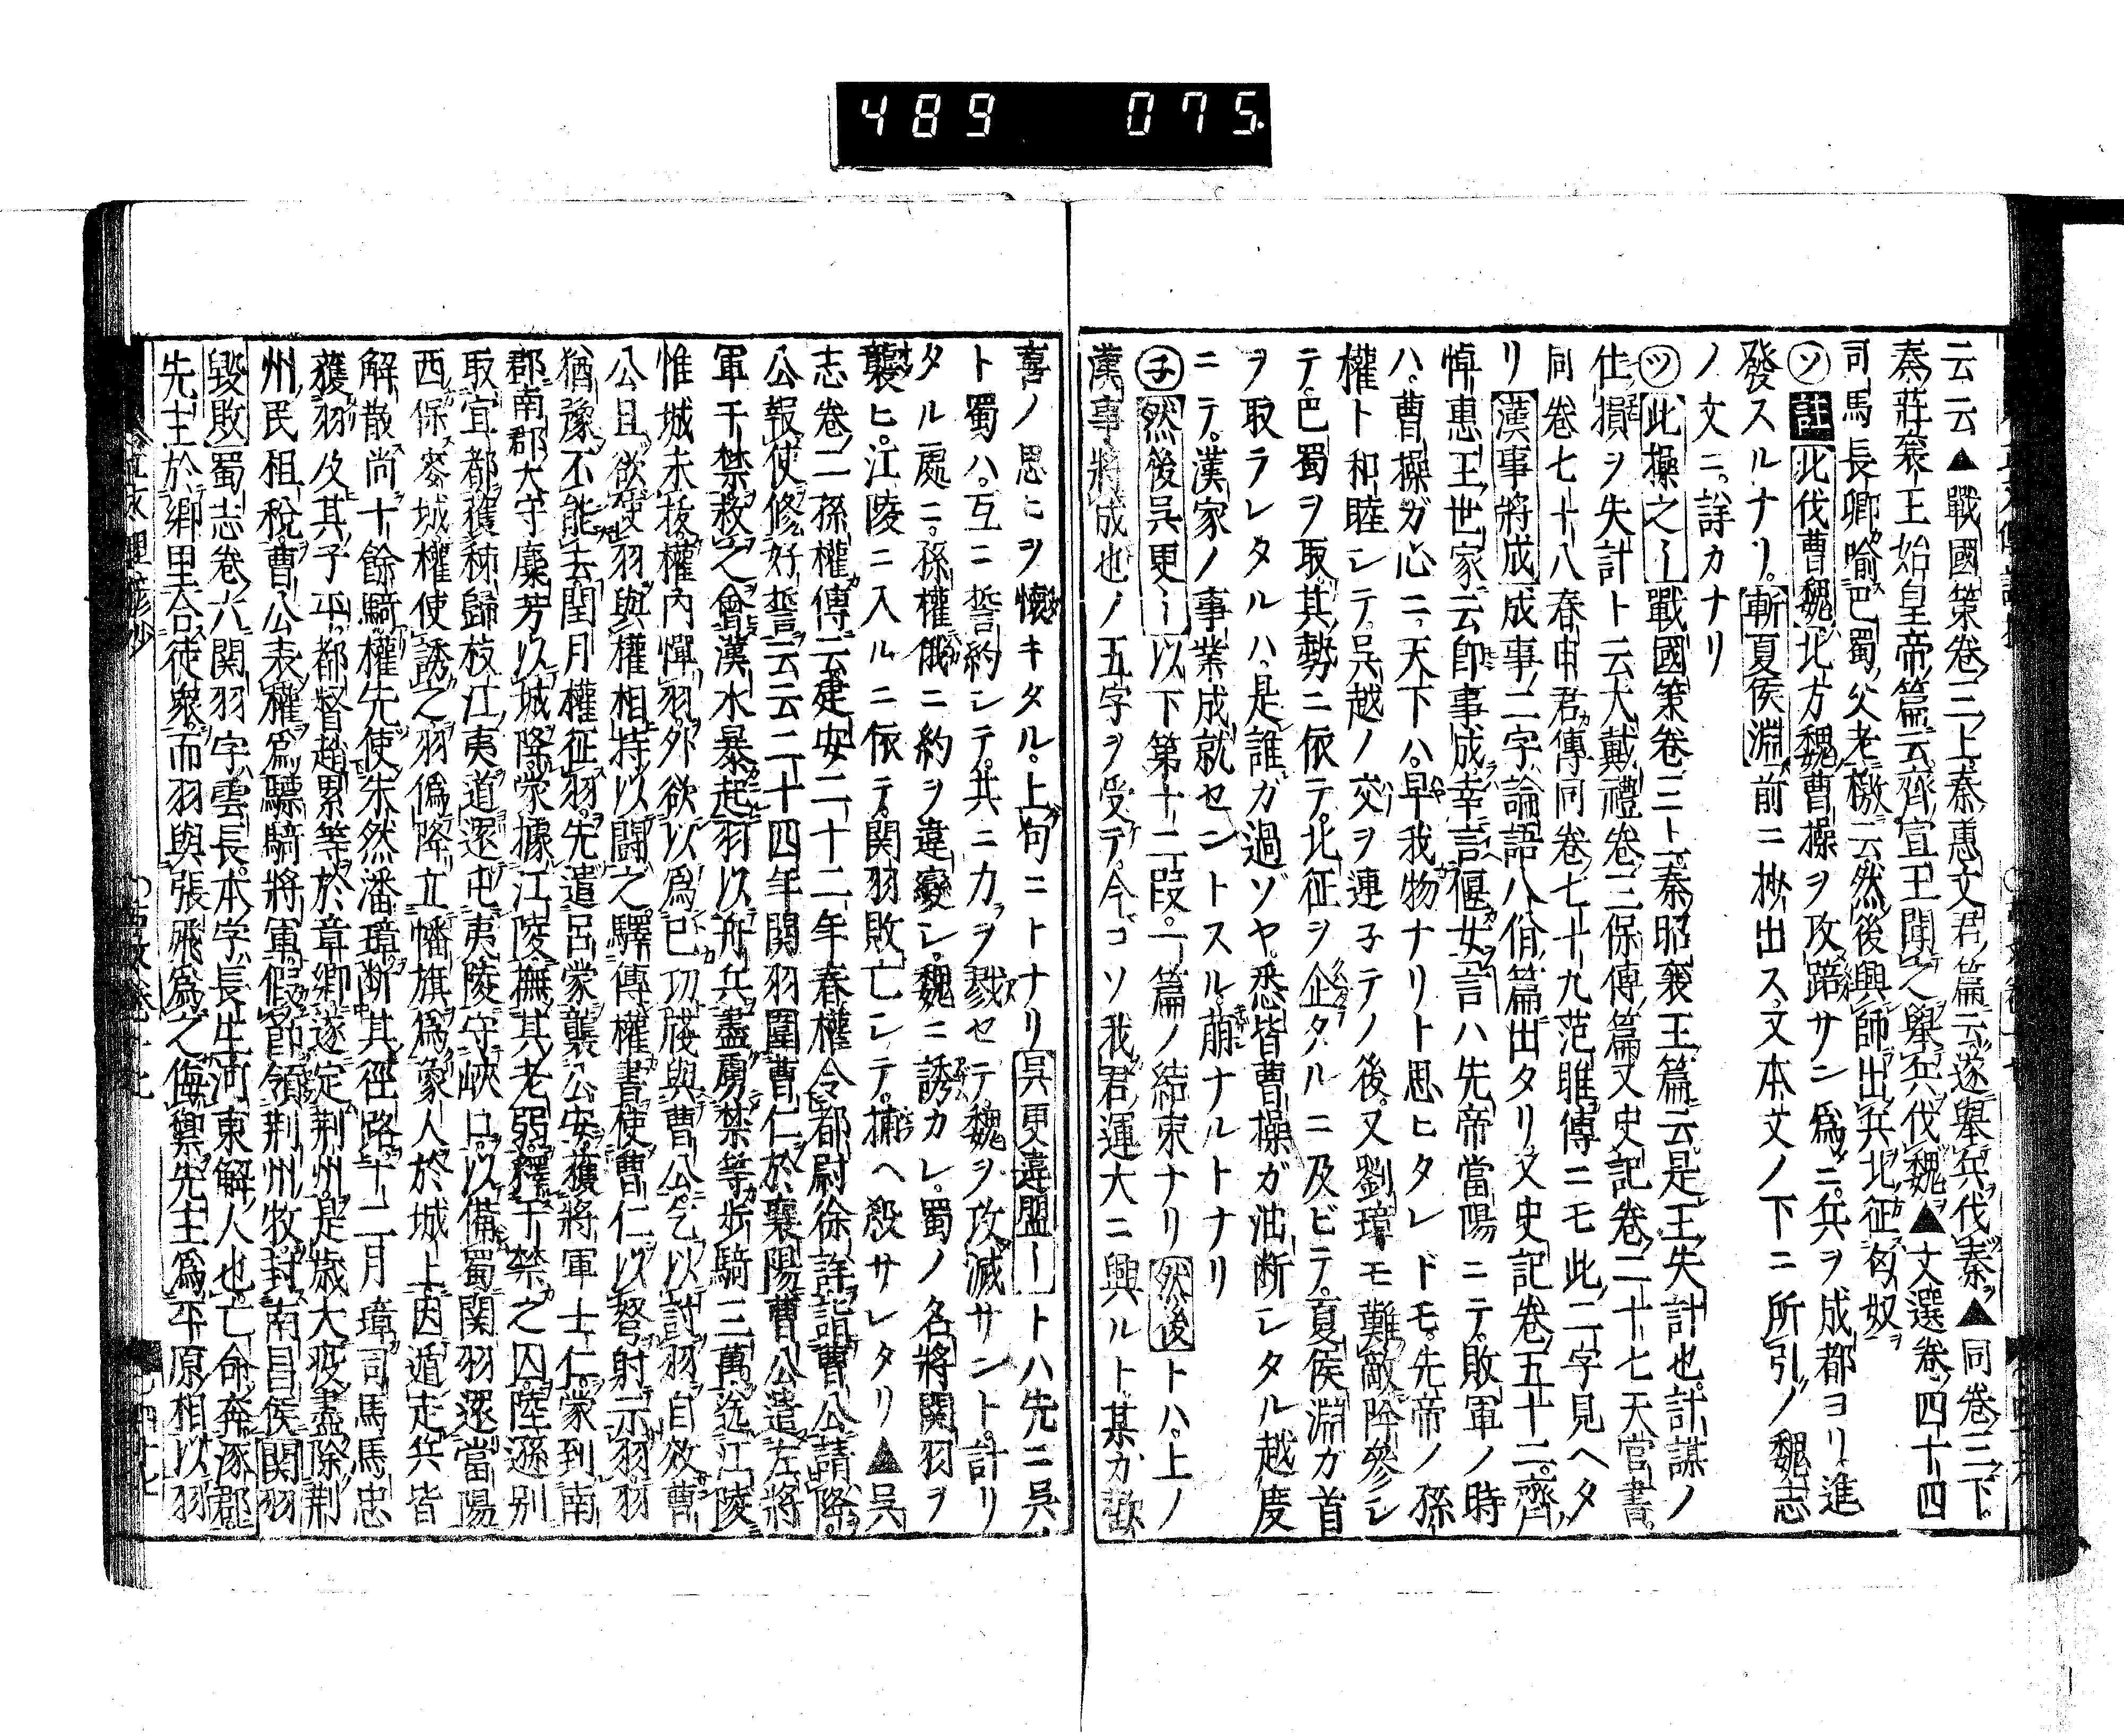 489 075.
云云▲戰國策卷三上秦惠文君篇云遂舉兵伐秦▲同卷三下。
秦莊襄王始皇帝篇云齊宣王聞之舉兵伐魏▲文選卷四十四
司馬長卿喩巴蜀父老檄云然後興師出兵北征匈奴
ソ註北伐曹魏北方魏曹操ヲ攻踣サン爲ニ。兵ヲ成都ヨリ進
發スルナリ。斬夏侯淵前ニ抄出ス文本文ノ下ニ所引ノ魏志
ノ文ニ。詳カナリ
ツ此操之ー戰國策卷三ト一秦昭襄王篇云是王失計也計謀ノ
仕損ヲ失計ト云大戴禮卷三保傳篇又史記卷二十七天官書。
同卷七十八春申君傳同卷七十九范雎傳ニモ此二字見ヘタ
リ漢事將成成事二字論語八佾篇出タリ又史記卷五十二。齊
悼惠王世家云卽事成幸言偃女言ハ先帝當陽ニテ。敗軍ノ時
ハ。曹操ガ心ニ天下ハ。早我物ナリト思ヒタレドモ。先帝ノ孫
權ト和睦シテ。呉越ノ交ヲ連子テノ後。又劉璋モ難敵降參シ
テ。巴蜀ヲ取。其勢ニ依テ。北征ヲ企タルニ及ビテ。夏侯淵ガ首
ヲ取ラレタルハ。是誰ガ過ゾヤ。悉皆曹操ガ油断シタル越度
ニテ。漢家ノ事業成就セントスル。萠ナルトナリ
子然後呉更ー以下第十二段。一篇ノ結束ナリ然後トハ。上ノ
漢事將成也ノ五字ヲ受テ。今コソ我君運大ニ興ルト。某ガ歡
喜ノ思ヒヲ懷キタル。上句ニトナリ呉更違盟ートハ先ニ呉
ト蜀ハ。互ニ誓約シテ。共ニ力ヲ戮セテ。魏ヲ攻滅サント。計リ
タル處ニ。孫權俄ニ約ヲ違變シ。魏ニ誘カレ。蜀ノ名將関羽ヲ
襲ヒ。江陵ニ入ルニ依テ。関羽敗亡シテ。捕ヘ殺サレタリ▲呉
志卷二孫權傳云建安二十二年春權令都尉徐詳詣曹公請降。
公報使修好誓云云二十四年関羽圍曹仁於襄陽曹公遣左將
軍于禁救之會漢水暴起羽以舟兵盡虜禁等步騎三萬送江陵
惟城未拔權內憚羽外欲以爲己功牋與曹公乞以討羽自效曹
公且欲使羽與權相持以鬪之驛傳權書使曹仁以弩射示羽羽
猶豫不能去閏月權征羽。先遣呂蒙襲公安獲將軍士仁。蒙到南
郡南郡太守麋芳以城降。蒙據江陵撫其老弱。釋于禁之囚。陸遜別
取宜都獲秭歸枝江夷道還屯夷陵守峽口。以備蜀関羽還當陽
西保麥城權使誘之羽僞降立幡旗爲象人於城上因遁走兵皆
解散尚十餘騎權先使朱然潘璋断其徑路十二月璋司馬馬忠
獲羽及其子平都督趙累等於章鄉遂定荆州。是歲大疫盡除荆
州民租稅曹公表權爲驃騎將軍假節領荆州牧封南昌侯関羽
毀敗蜀志卷六関羽字雲長。本字長生河東解人也亡命奔涿郡
先主於鄉里合徒衆。而羽與張飛爲之侮禦先主爲平原相以羽